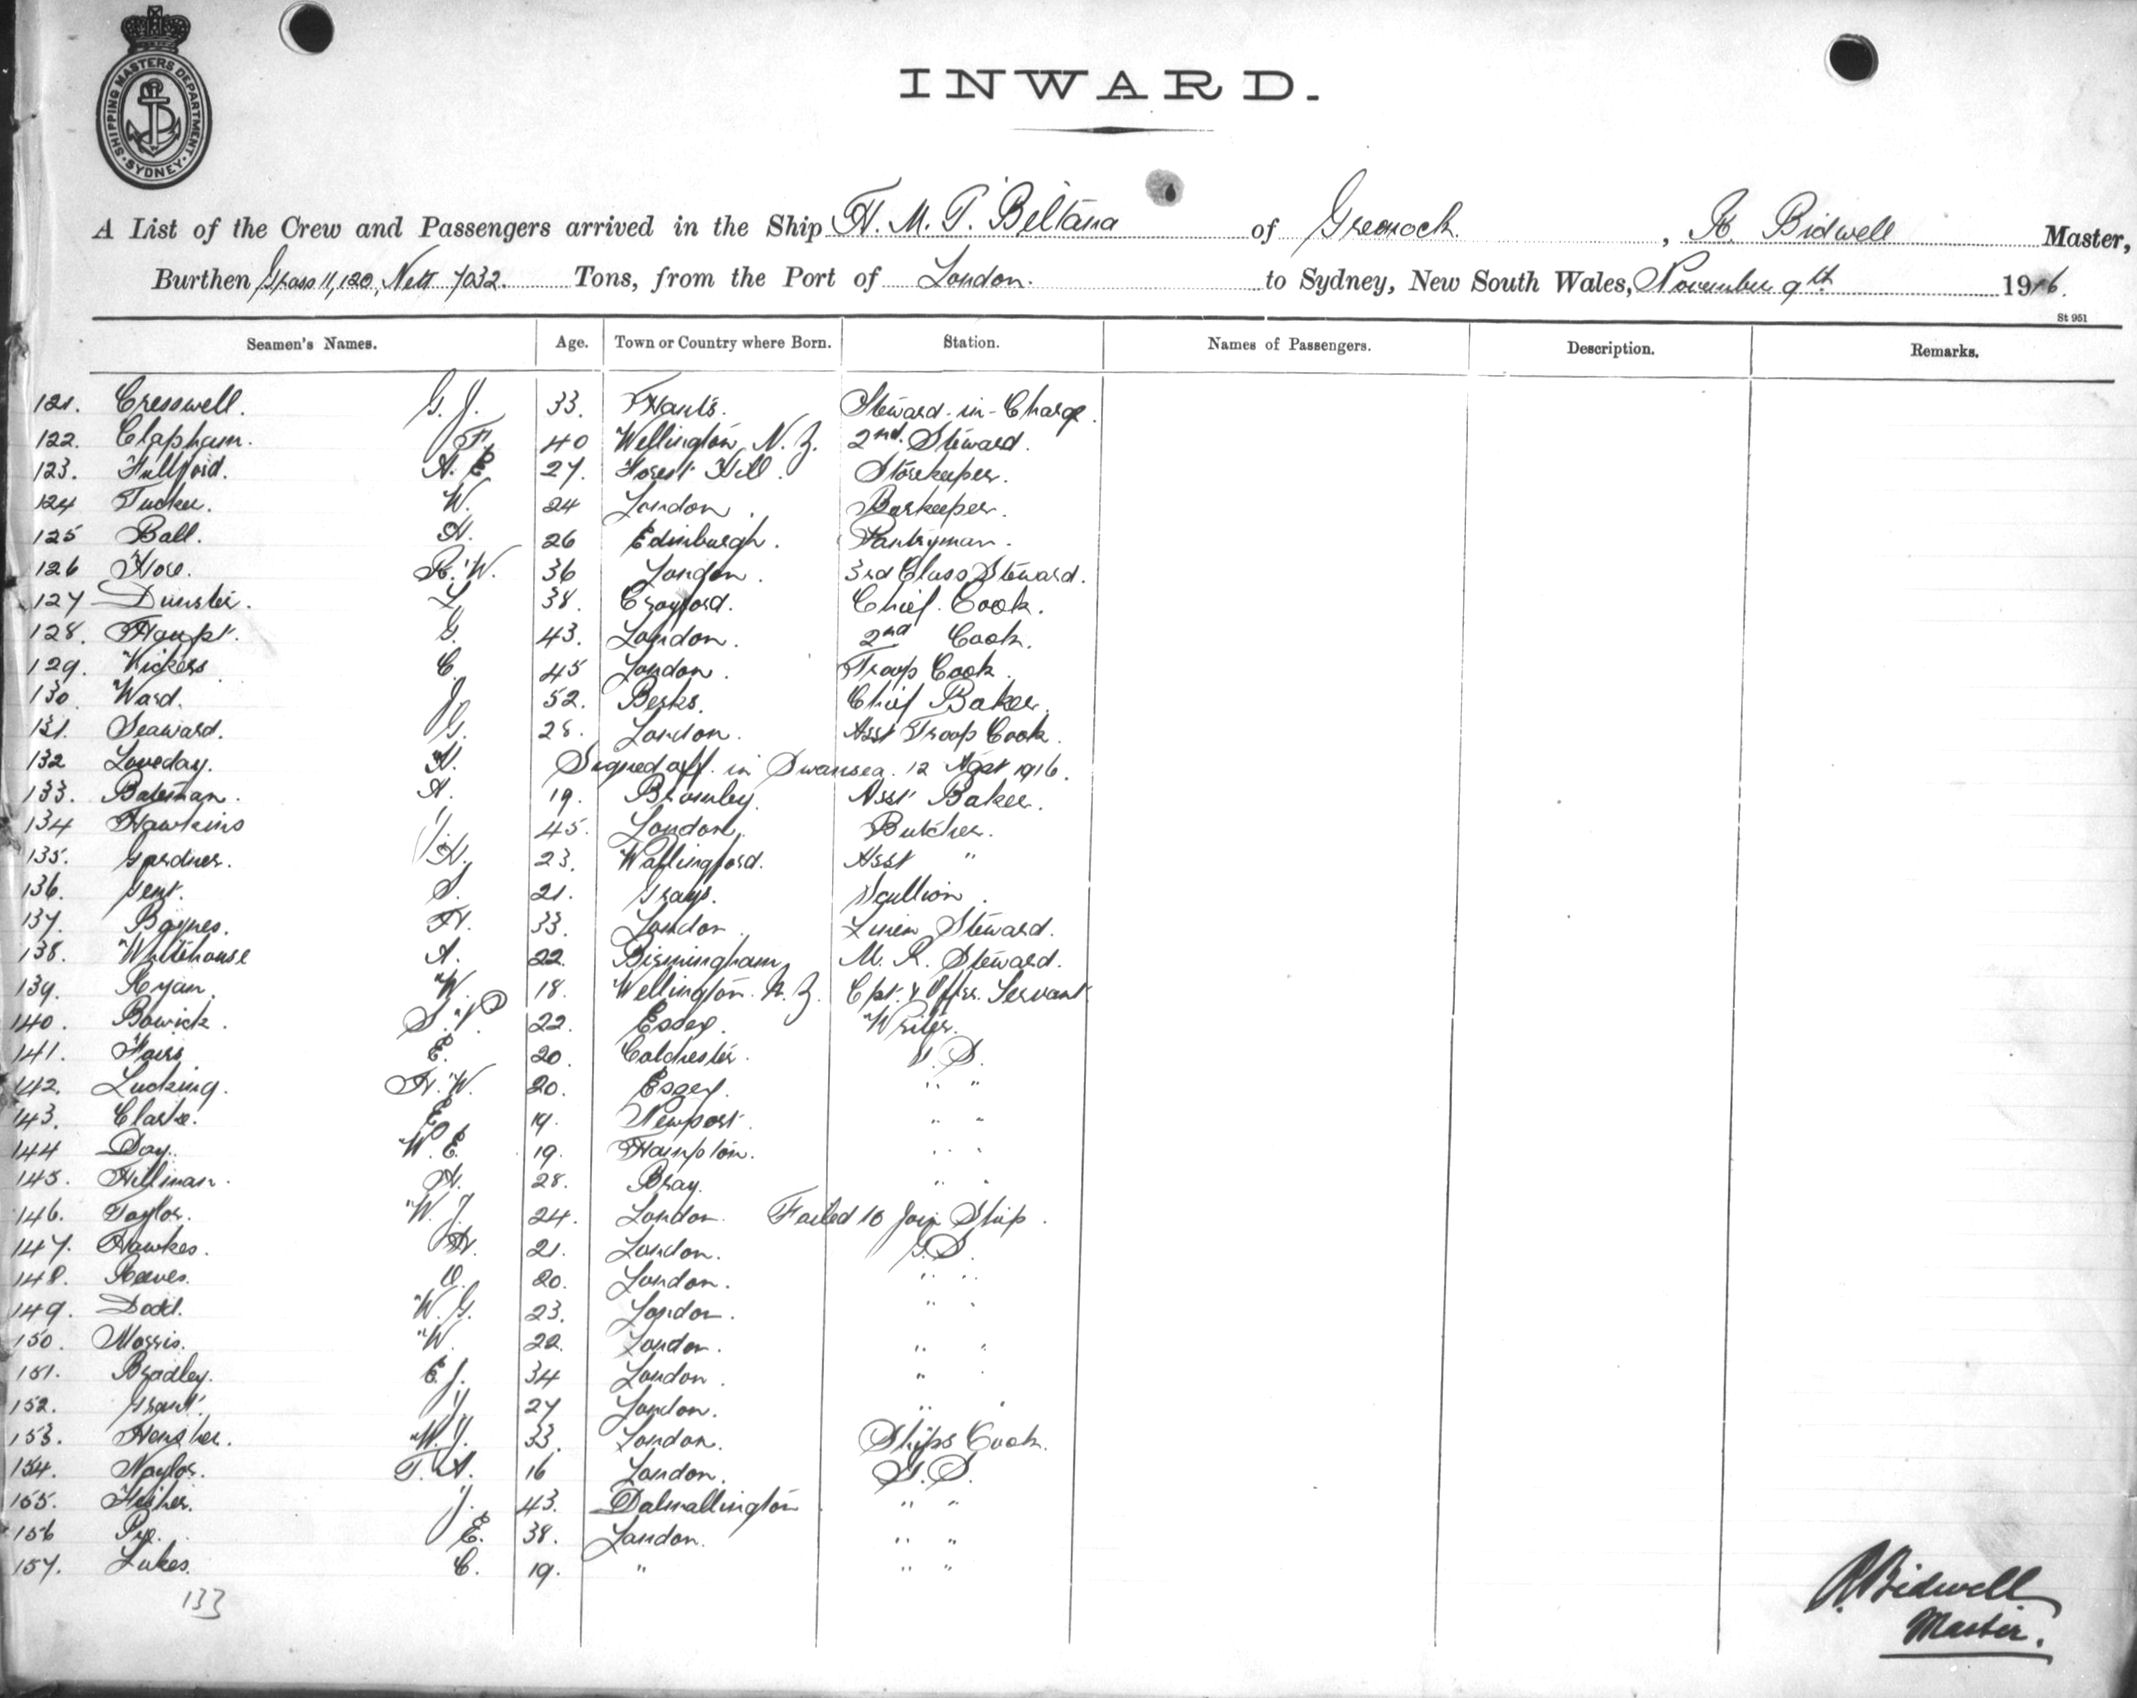 SHIPPING MASTERS DEPARTMENT
SYDNEY
INWARD.
A List of the Crew and Passengers arrived in the Ship H. M. T. Beltana of Greenock. , R. Bidwell Master,
Burthen Gross 11,120, Nett 7032. Tons, from the Port of London. to Sydney, New South Wales, November 9th 1916.
St 951
Seamen's Names. Age. Town or Country where Born. Station. Names of Passengers. Description. Remarks.
121. Cresswell. G. J. 33. Hants. Steward-in-Charge.
122. Clapham. F. 40 Wellington N. Z. 2nd. Steward.
123. Fullford. A. E 27. Forest Hill. Storekeeper.
124 Tucker. W. 24 London. Barkeeper.
125 Ball. A. 26 Edinburgh. Pantryman.
126 Hore. R. W. 36 London. 3rd Class Steward.
127 Dunster. L 38. Crayford. Chief Cook.
128. Haupt. G. 43. London. 2nd Cook.
129. Vickers C. 45 London. Troop Cook.
130. Ward. J. 52. Berks. Chief Baker.
131. Seaward. G. 28. London. Asst Troop Cook.
132 Loveday. H. Signed off in Swansea. 12 Agst 1916.
133. Bateman. A. 19. Bromley. Asst Baker.
134 Hawkins J. 45. London. Butcher.
135. Gardner. H. 23. Wallingford. Asst "
136. Gent. S. 21. Grays. Scullion.
137. Baynes. H. 33. London. Linen Steward.
138. Whitehouse A. 22. Birmingham M. R. Steward.
139. Ryan. W. 18. Wellington. N. Z. Cpt. & Offrs. Servant
140. Bowick. S. V. P 22. Essex. Writer.
141. Fairs E. 20. Colchester. G. S.
142. Lucking. H. W. 20. Essex. " "
143. Clarke. E. 19. Newport. " "
144 Day. W. E. 19. Hampton. " "
145. Hillman. H. 28. Bray. " "
146. Taylor. W. J. 24. London. Failed to join Ship.
147. Hawkes. H. 21. London. G. S.
148. Reeves. O. 20. London. " "
149. Dodd. W. G. 23. London. " "
150. Morris. W. 22. London. " "
151. Bradley. E. J. 34 London. " "
152. Grant. J. 27 London. " "
153. Hensher. W. J. 33. London. Ships Cook.
154. Naylor. T. A. 16 London. G. S.
155. Fisher. J. 43. Dalmallington " "
156 Pye. E. 38. London. " "
157. Lukes. C. 19. " " "
133
R. Bidwell
Master.